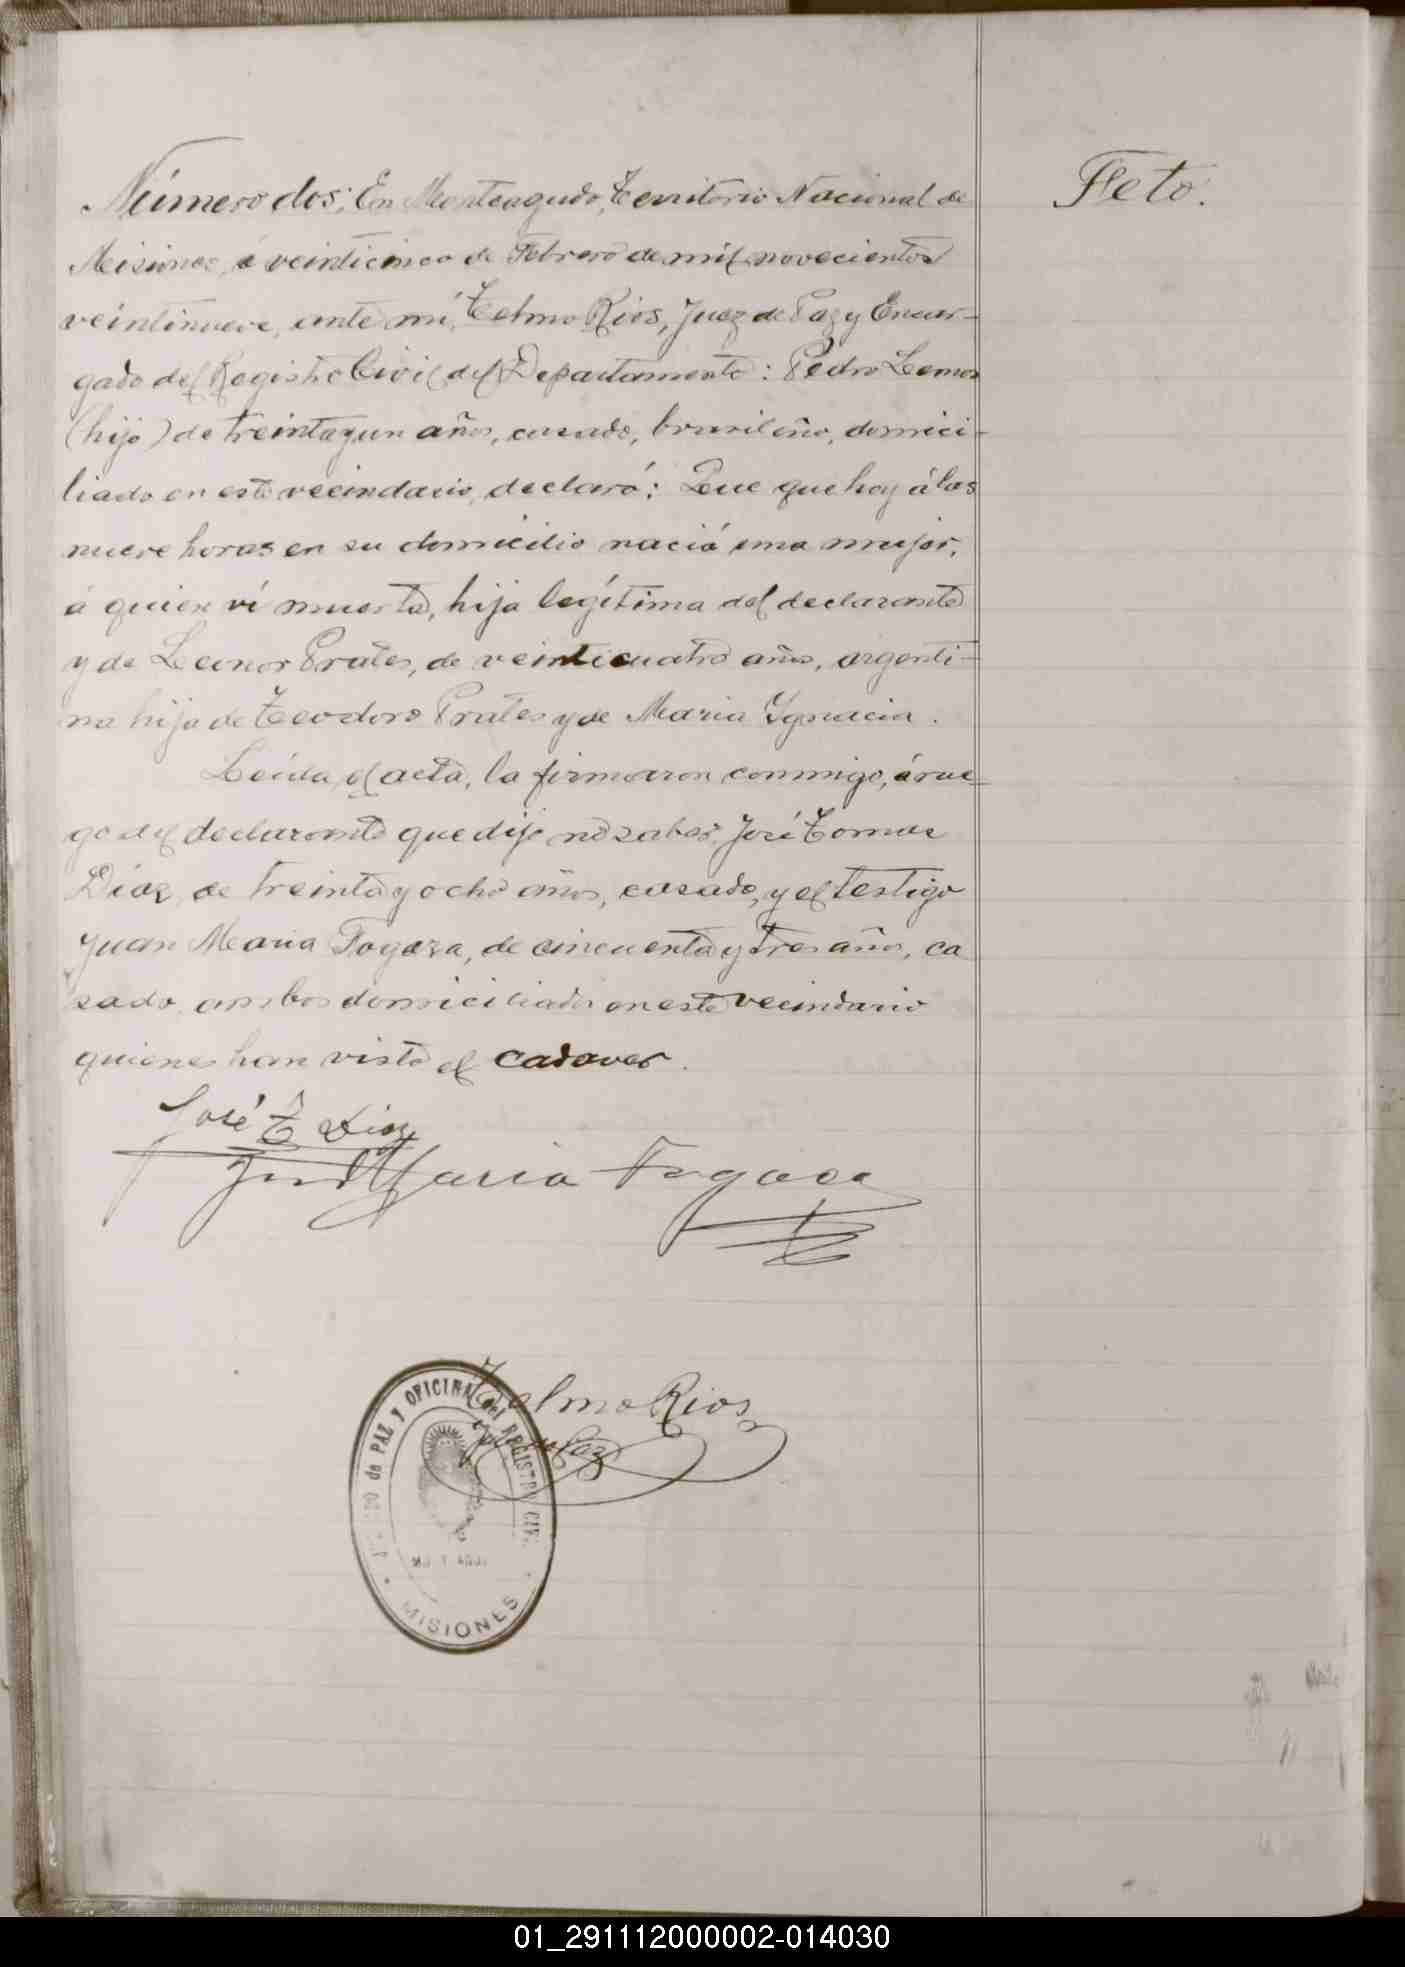 Número dos: En Monteagudo, Territorio Nacional de
Misiones, á veinticinco de Febrero de mil novecientos
veintinueve, ante mí, Telmo Rios, Juez de Paz y Encar-
gado del Registro Civil del Departamento: Pedro Lemos
(hijo) de treinta y un años, casado, brasileño, domici-
liado en este vecindario, declaró: Que que hoy á las
nueve horas en su domicilio nació una mujer,
á quien ví muerta, hija legítima del declarante
y de Leonor Prates, de veinticuatro años, argenti-
na hija de Teodoro Prates y de Maria Ygnacia.
Leída el acta, la firmaron conmigo, á rue-
go del declarante que dijo no saber, José Tomas
Díaz, de treinta y ocho años, casado, y el testigo
Juan Maria Fogaza, de cincuenta y tres años, ca
sado, ambos domiciliados en este vecindario
quienes han visto el cadaver.
Feto.
José T Diaz
Juan Maria Fogaca
Telmo Rios
Juez de Paz
de PAZ y OFICINA del REGISTRO CIVIL
MISIONES
01_291112000002-014030